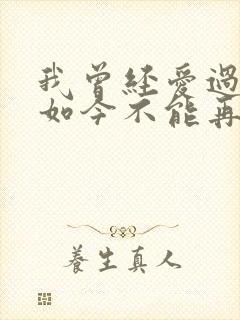 我曾经爱過
如今不能再
養生真人